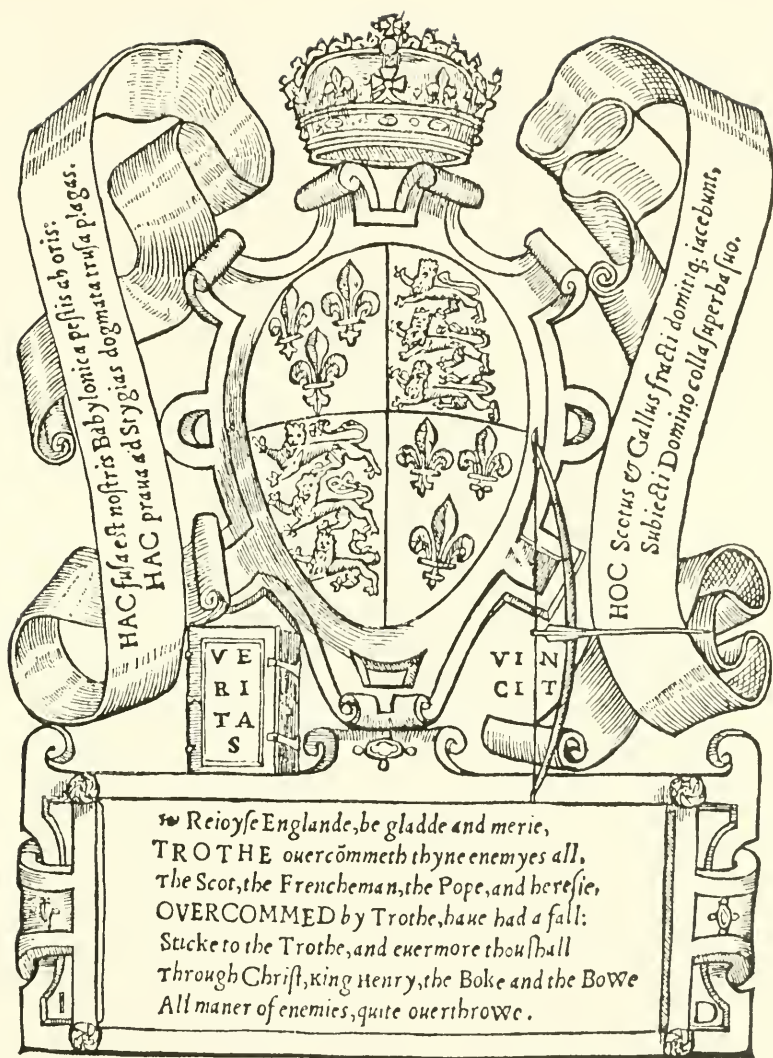 HAC fusa est nostris Babylonica pestis ab oris:
HAC praua ad Stygias dogmata trusa plagas.
HOC Scotus & Gallus fracti domitiq; iacebunt,
Subiecti Domino colla superba suo.
VE
RI
TA
S
VIN
CIT
Reioyſe Englande, be gladde and merie,
TROTHE ouercõmeth thyne enemyes all.
The Scot, the Frencheman, the Pope, and hereſie,
OVERCOMMED by Trothe, haue had a fall:
Sticke to the Trothe, and euermore thou ſhall
Through Chriſt, King Henry, the Boke and the Bowe
All maner of enemies, quite ouerthrowe.
I D